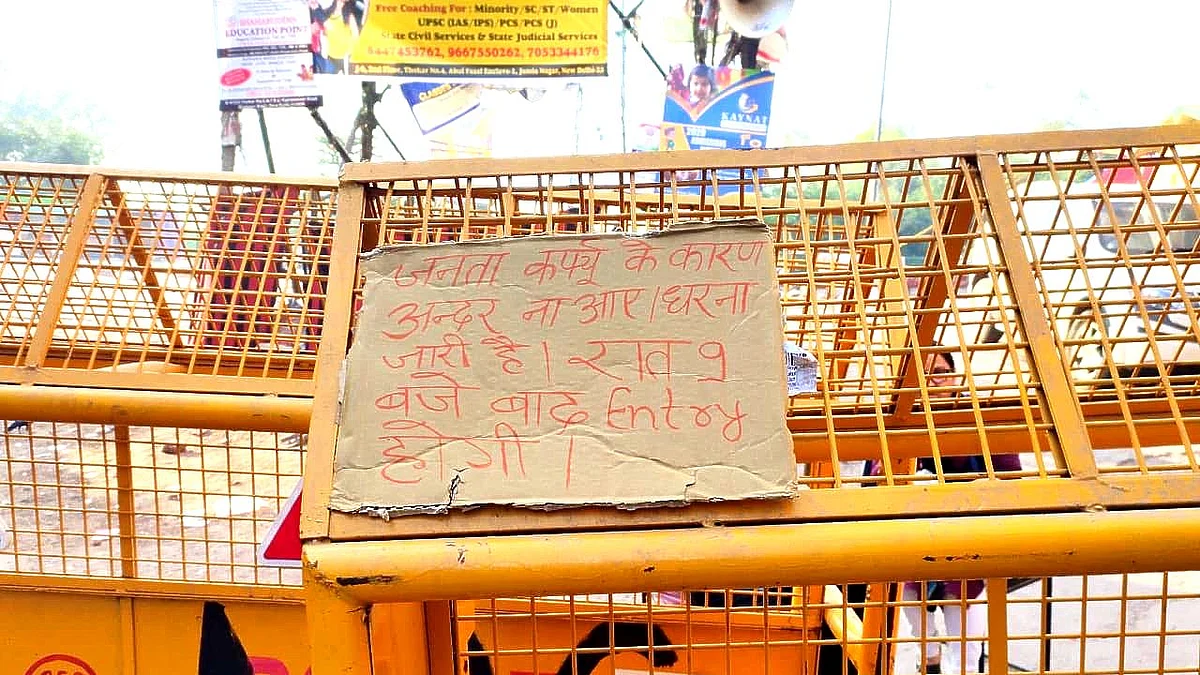 EDUCATION POINT
Free Coaching For : Minority/SC/ST/Women
UPSC (IAS/IPS)/PCS/PCS (J)
State Civil Services & State Judicial Services
9447453762, 9667550262, 7053344176
KAYNAT
जनता कर्फ्यू के कारण
अन्दर ना आए। धरना
जारी है। रात 9
बजे बाद Entry
होगी।